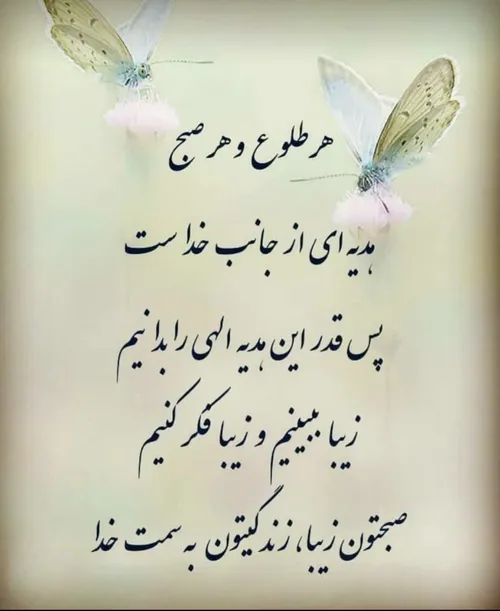 هر طلوع و هر صبح
هدیه ای از جانب خداست
پس قدر این هدیه الهی را بدانیم
زیبا ببینیم و زیبا فکر کنیم
صبحتون زیبا، زندگیتون به سمت خدا